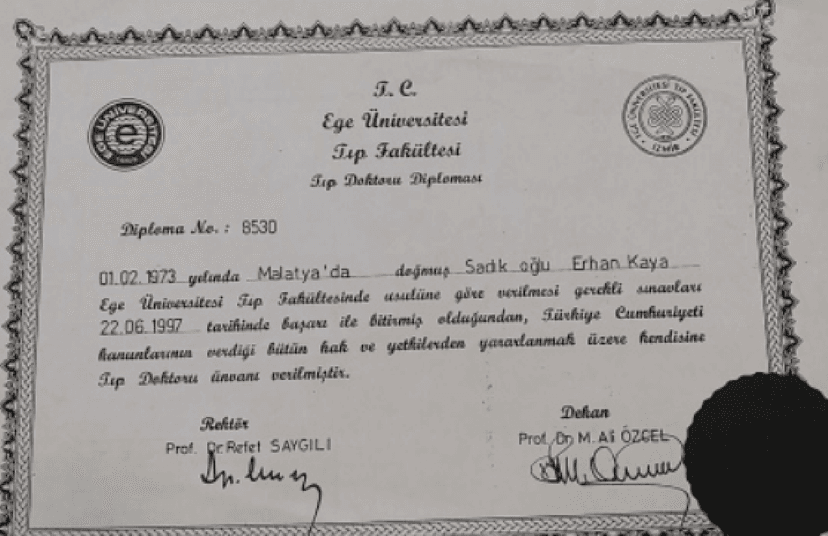 T. C.
Ege Üniversitesi
Tıp Fakültesi
Tıp Doktoru Diploması
EGE ÜNİVERSİTESİ
e
EGE ÜNİVERSİTESİ TIP FAKÜLTESİ
İZMİR
Diploma No. : 8530
01.02.1973 yılında Malatya'da doğmuş Sadık oğlu Erhan Kaya
Ege Üniversitesi Tıp Fakültesinde usulüne göre verilmesi gerekli sınavları
22.06.1997 tarihinde başarı ile bitirmiş olduğundan, Türkiye Cumhuriyeti
kanunlarının verdiği bütün hak ve yetkilerden yararlanmak üzere kendisine
Tıp Doktoru ünvanı verilmiştir.
Rektör
Prof. Dr. Refet SAYGILI
Dekan
Prof. Dr. M. Ali ÖZCEL